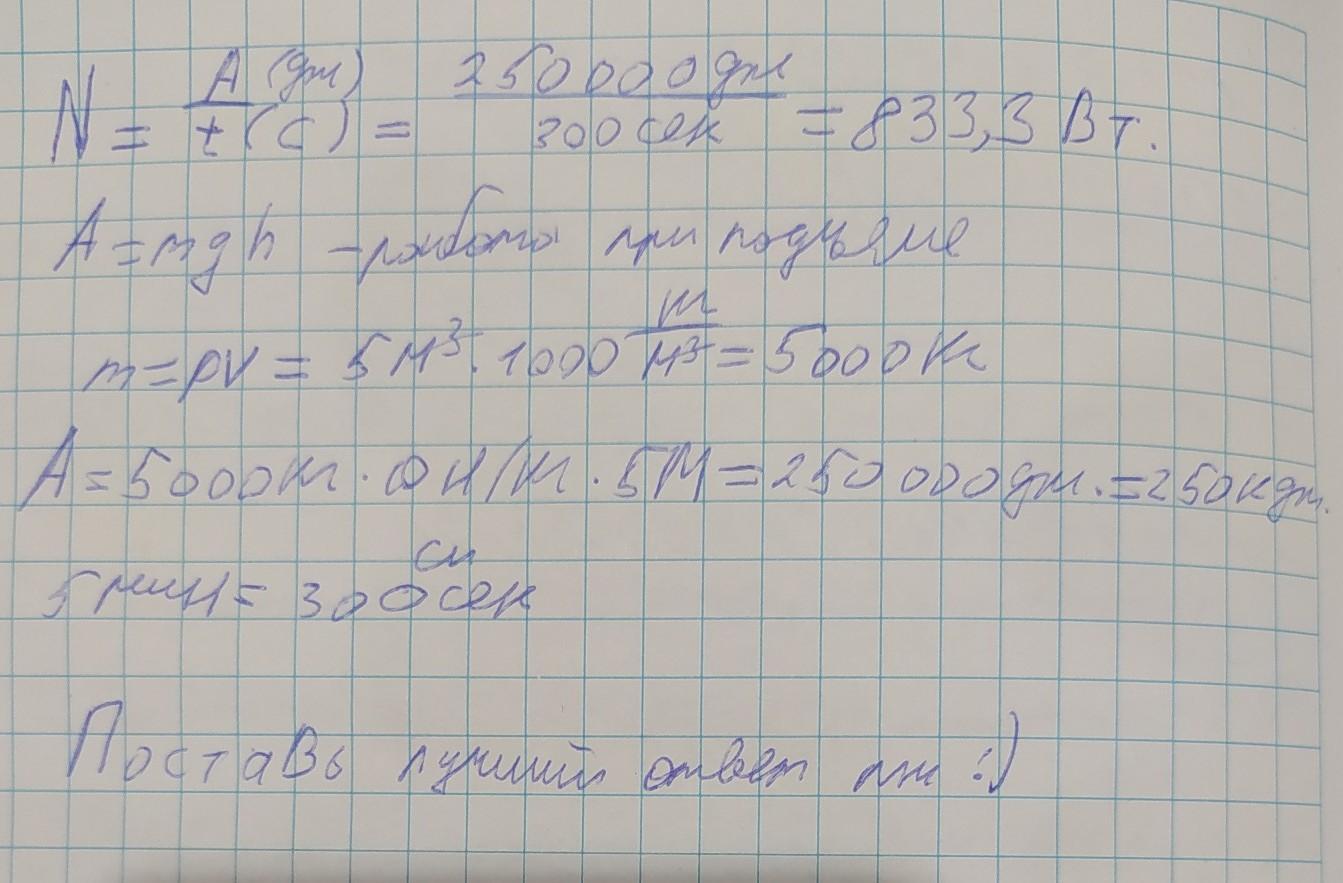 N = A (дж) / t (с) = 250000 дж / 300 сек = 833,3 Вт.
A = mgh – работа при подъеме
m = ρV = 5 м³ · 1000 кг/м³ = 5000 кг
A = 5000 кг · 10 Н/кг · 5 М = 250 000 дж. = 250 кдж.
си
5 мин = 300 сек
Поставь лучший ответ пж :)